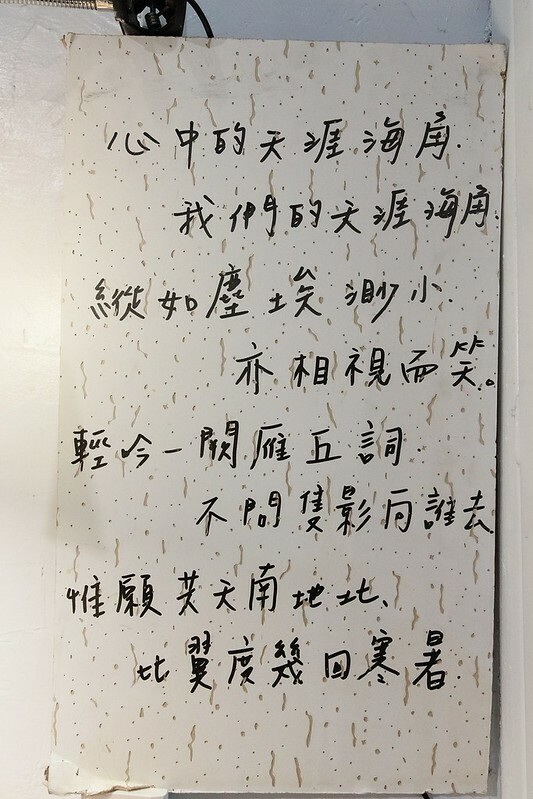 心中的天涯海角.
我們的天涯海角.
縱如塵埃渺小.
亦相視而笑。
輕吟一闋雁丘詞.
不問隻影向誰去
惟願共天南地北、
比翼度幾回寒暑.